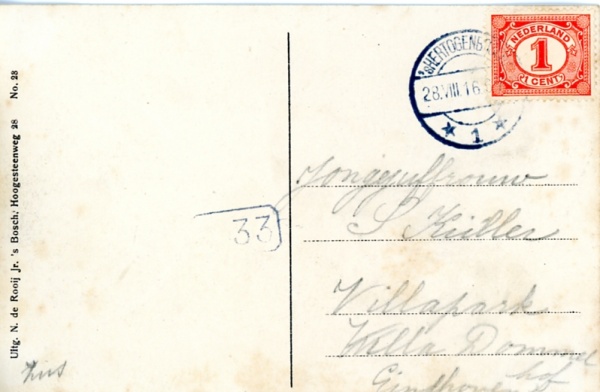 Uitg. N. de Rooij Jr. 's Bosch. Hoogesteenweg 28 No. 28
'sHERTOGENB
28.VIII.16
1
NEDERLAND
1
1 CENT
33
Jongejuffrouw
S Küller
Villapark
Villa Dommel
hof
Eindhoven